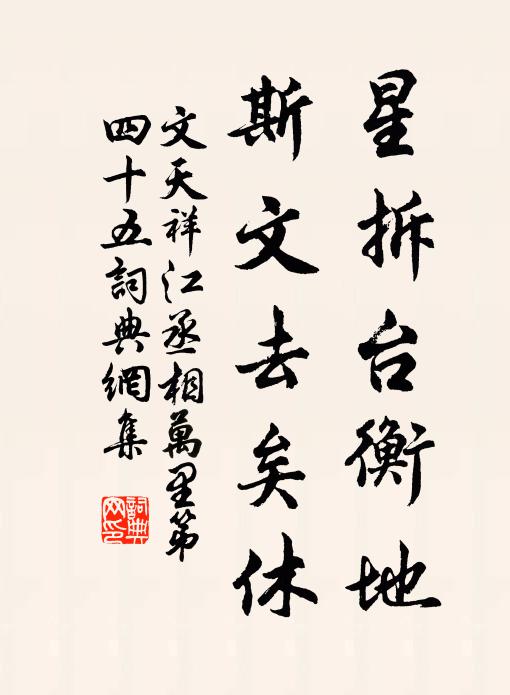 星拆台衡地
斯文去矣休
文天祥江丞相萬里第
四十五詞典網集
詞典
网印